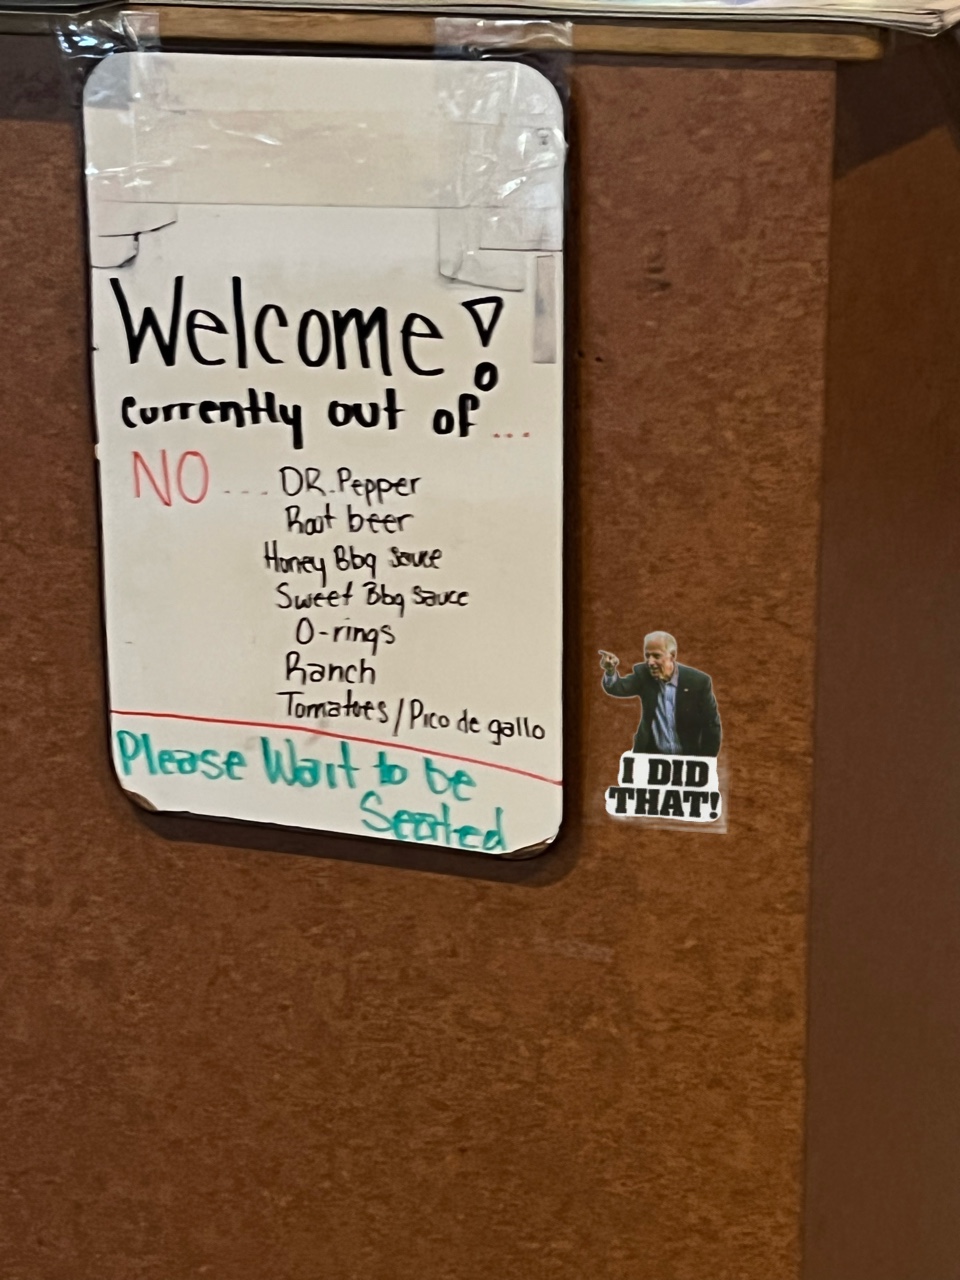 Welcome!
Currently out of ...
NO .... DR. Pepper
Root beer
Honey Bbq sauce
Sweet Bbq sauce
O-rings
Ranch
Tomatoes / Pico de gallo
Please Wait to be
Seated
I DID
THAT!